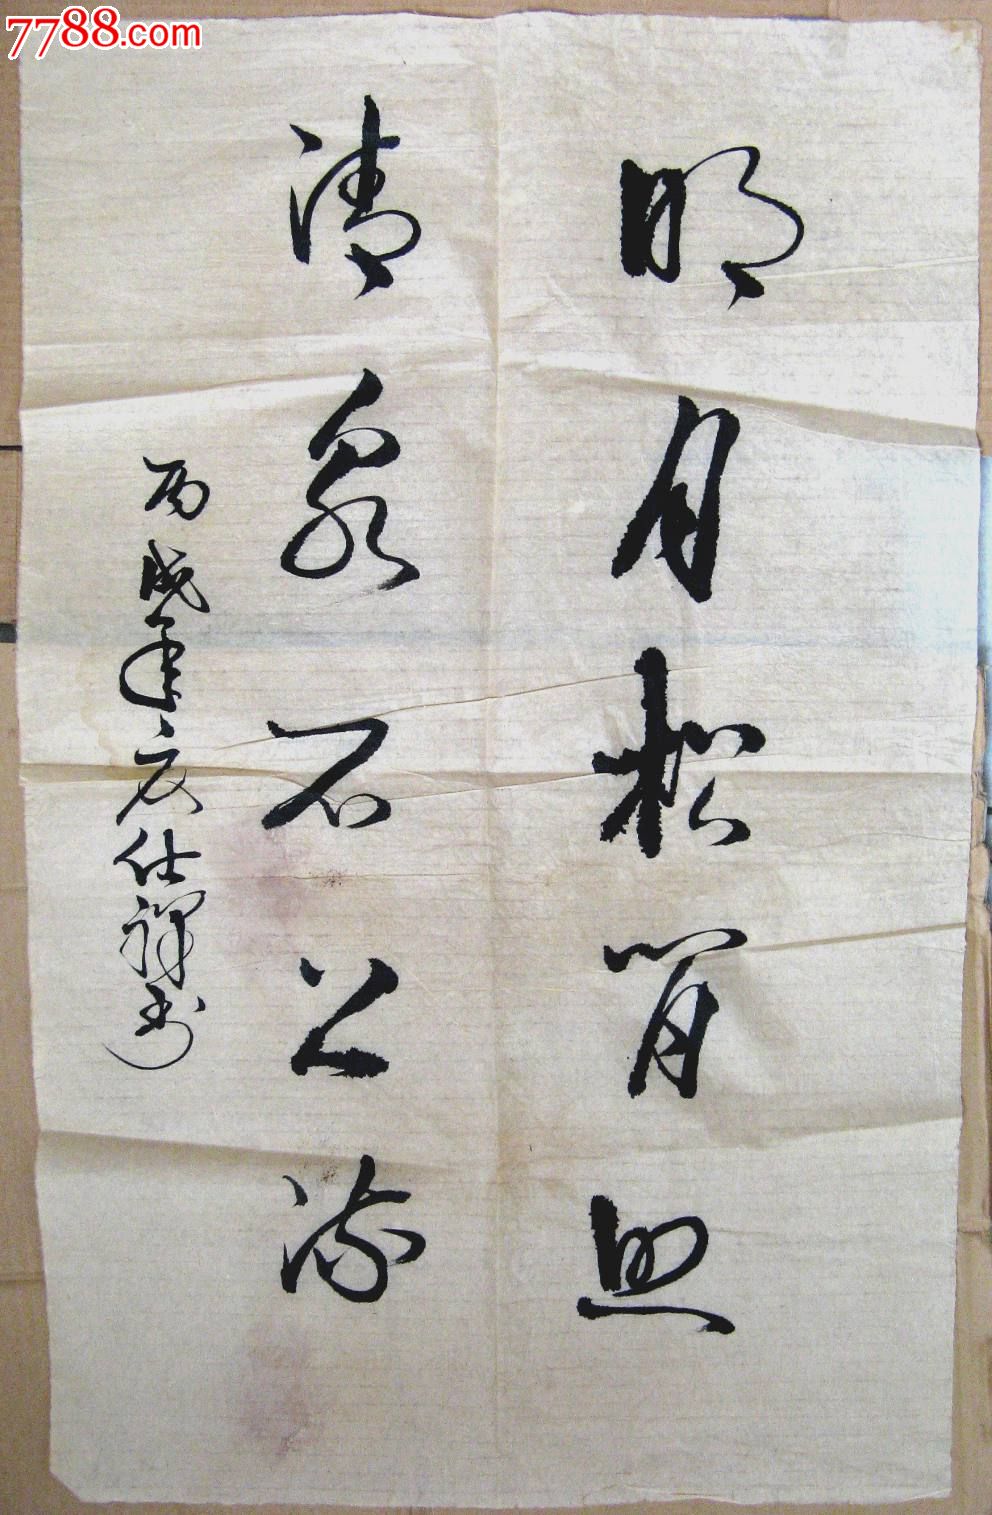 7788.com
明月松间照
清泉石上流
丙戌年夏仕祥书